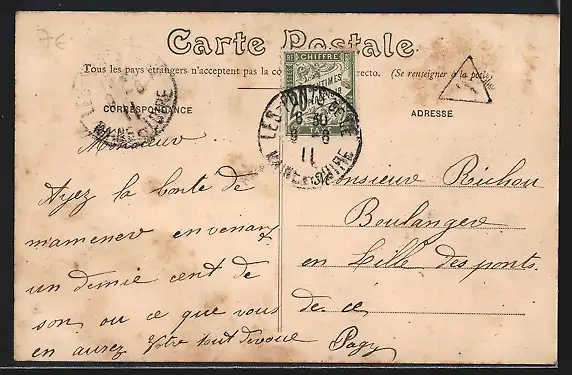 7€
Carte Postale
Tous les pays étrangers n'acceptent pas la recto. (Se renseigner à la poste)
CORRESPONDANCE
ADRESSE
CHIFFRE
CENTIMES
TAXE
LES-PONTS-DE-CÉ
8 30
9 8
11
MAINE-ET-LOIRE
MAINE-ET-LOIRE
Monsieur
Ayez la bonté de
m'amener en venant
un demie cent de
son, ou ce que vous
en aurez Votre tout dévoué
Monsieur Richou
Boulanger
en Ville des ponts.
de ce
Pagy